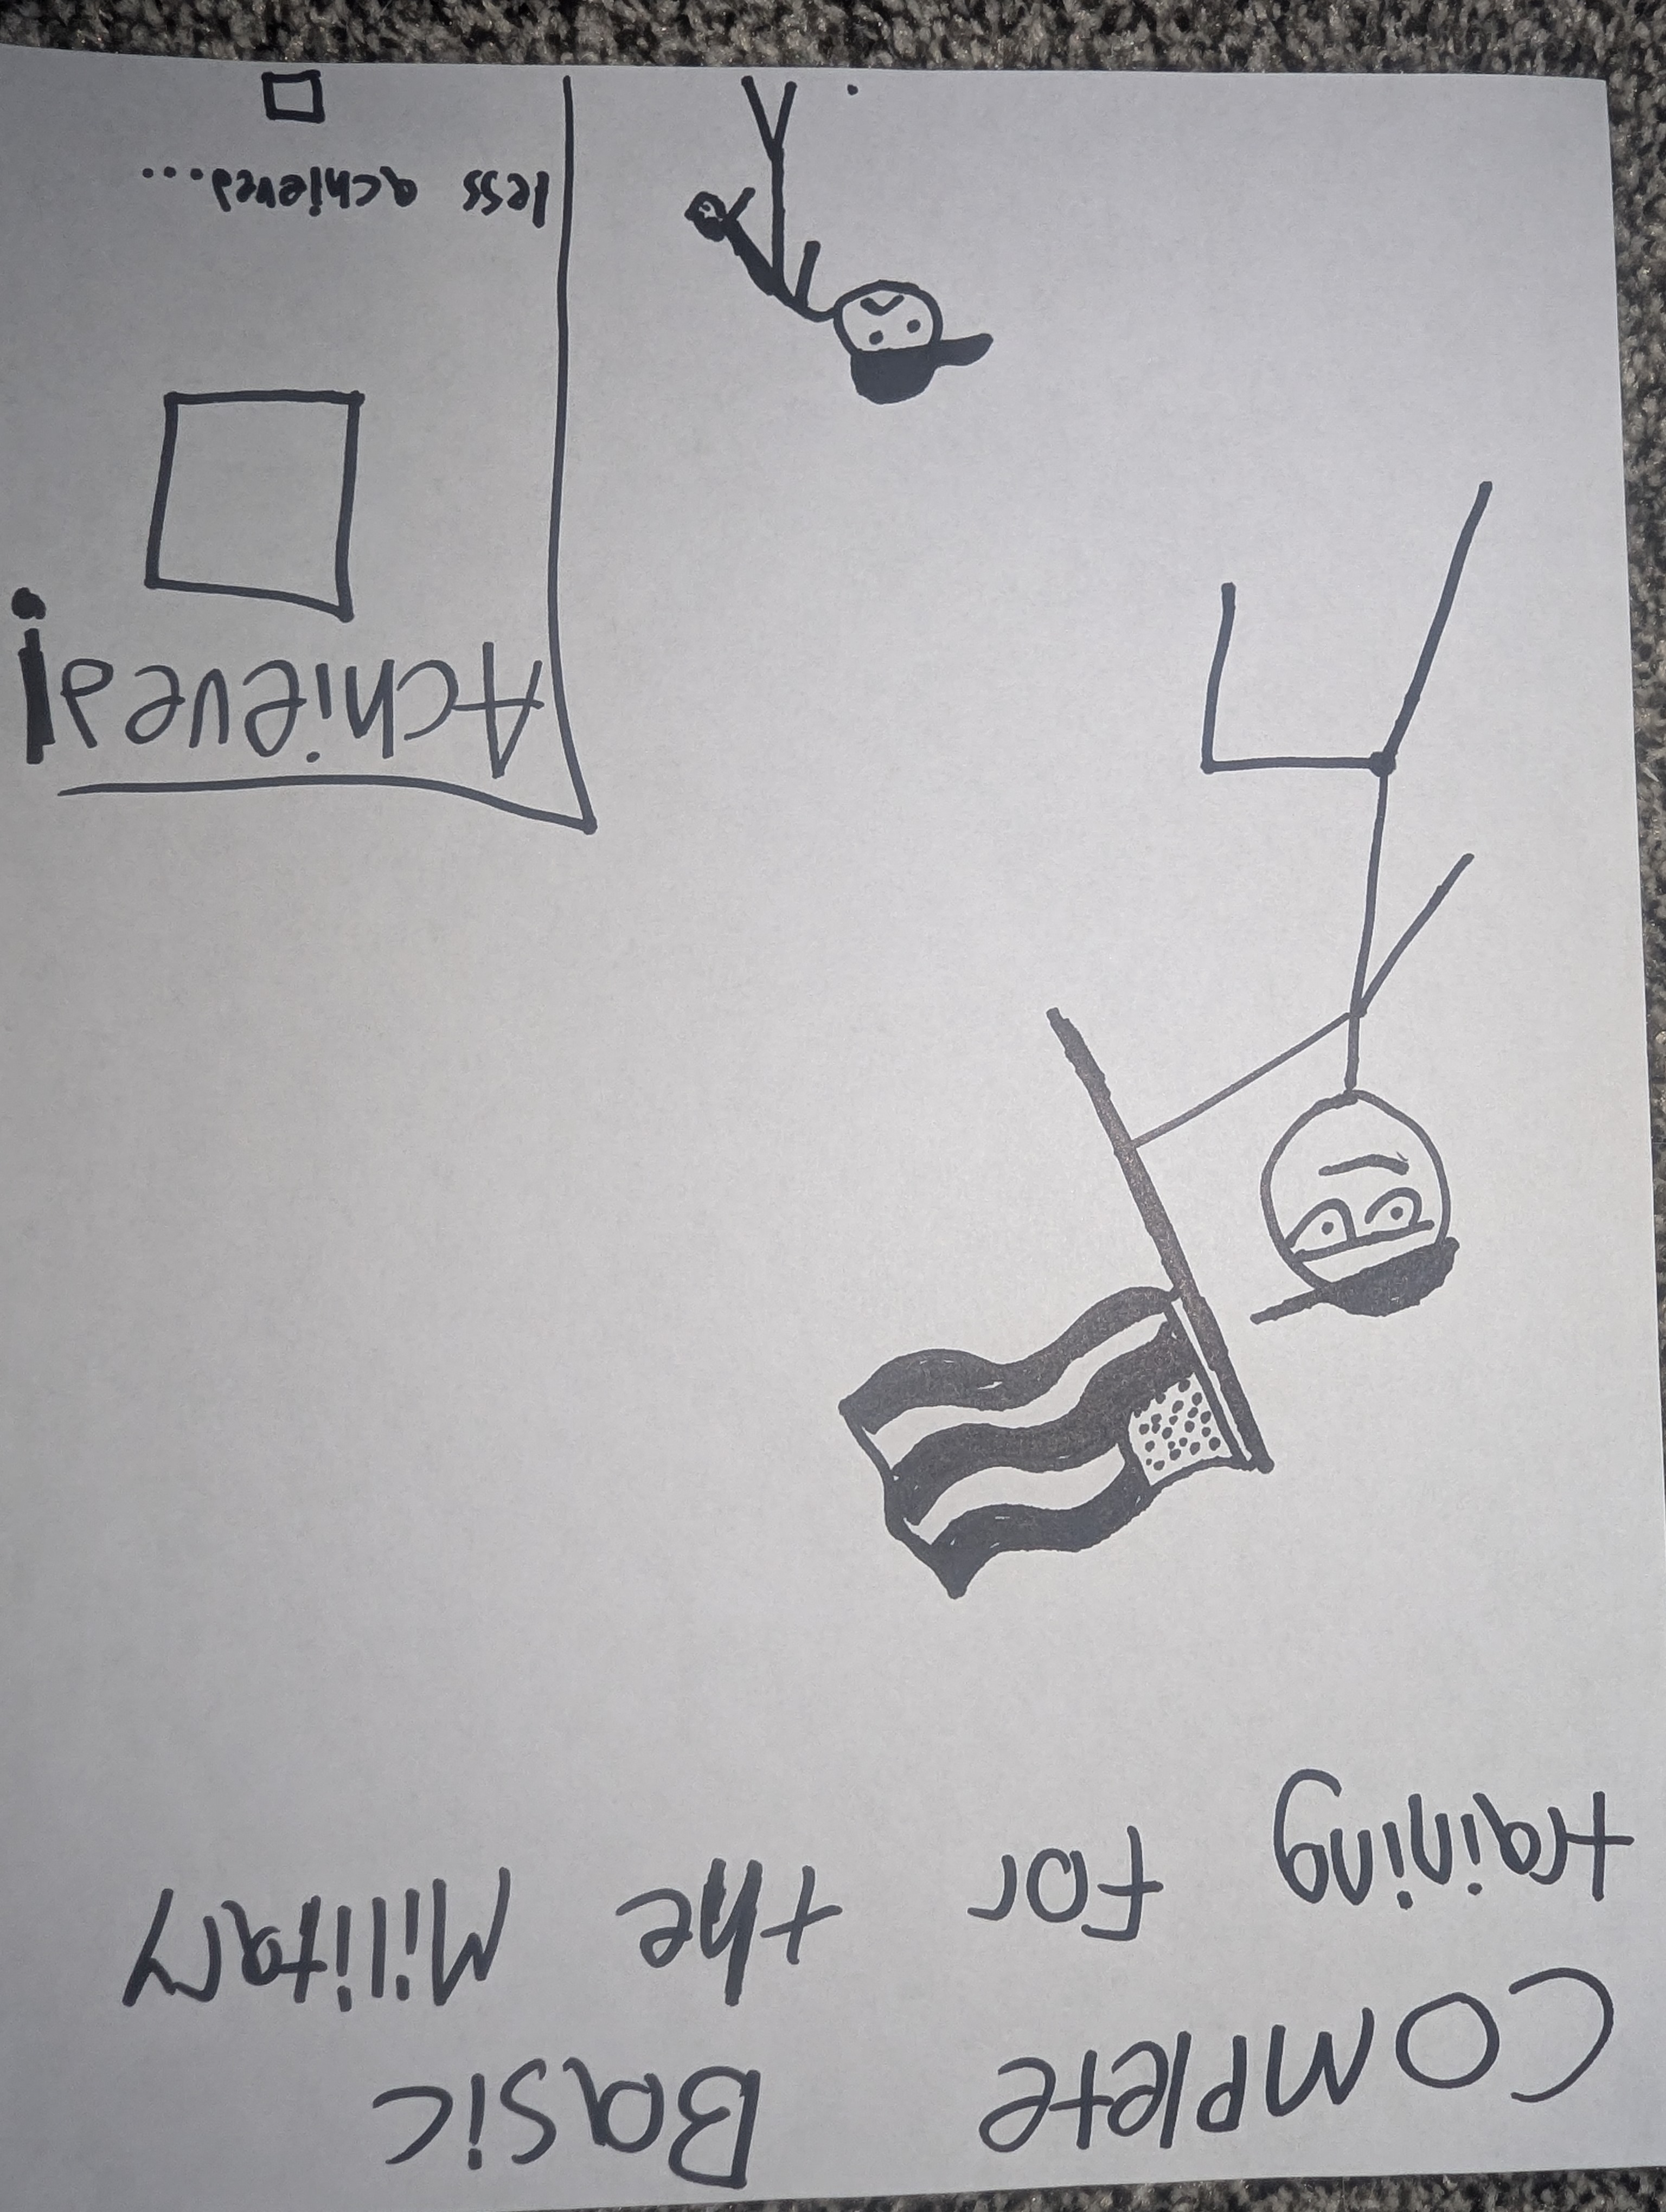 Complete Basic
training for the Military
Achieved!
less achieved...